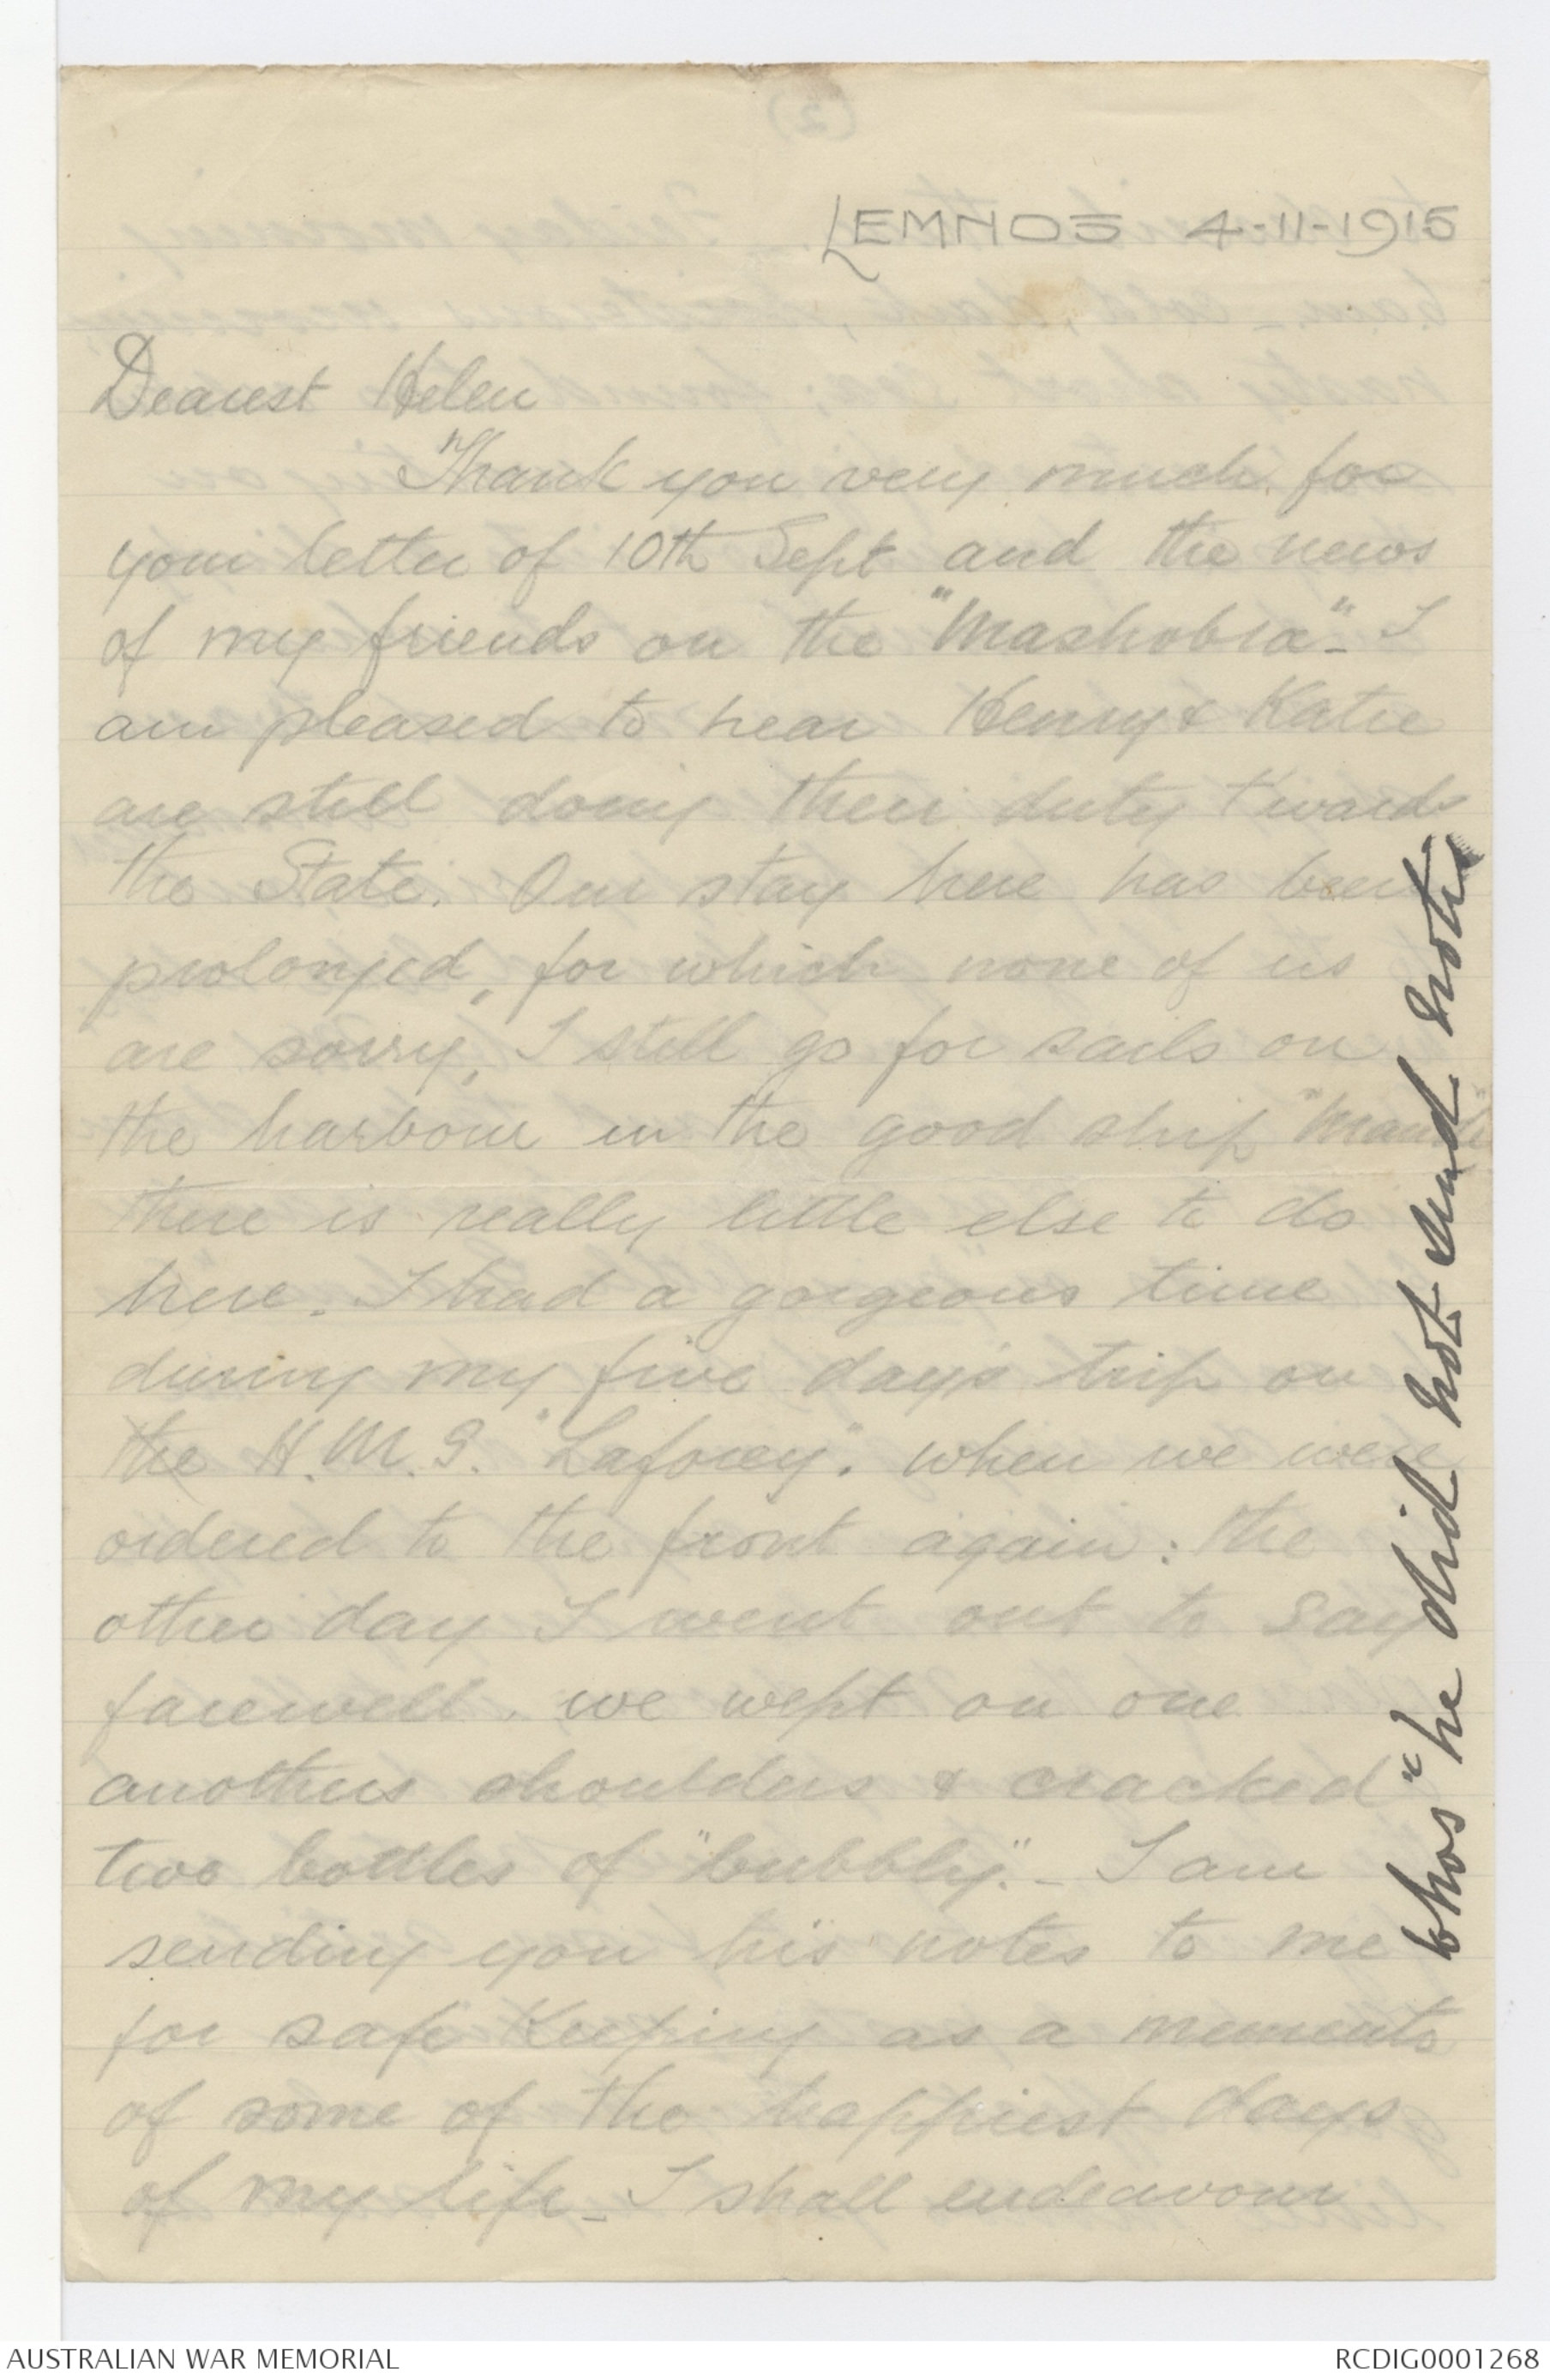 LEMNOS 4-11-1915
Dearest Helen
Thank you very much for
your letter of 10th Sept and the news
of my friends on the "Mashobra" - I
am pleased to hear Henry & Katie
are still doing their duty towards
the State. Our stay here has been
prolonged, for which none of us
are sorry, I still go for sails on
the harbour in the good ship
there is really little else to do
here. I had a gorgeous time
during my five days trip on
the H.M.S. "Laforey". when we were
ordered to the front again: the
other day I went out to say
farewell. we wept on one
anothers shoulders & cracked
two bottles of "bubbly". - I am
sending you his notes to me
for safe keeping as a memento
of some of the happiest days
of my life - I shall endeavour
"he did not send notes
AUSTRALIAN WAR MEMORIAL
RCDIG0001268